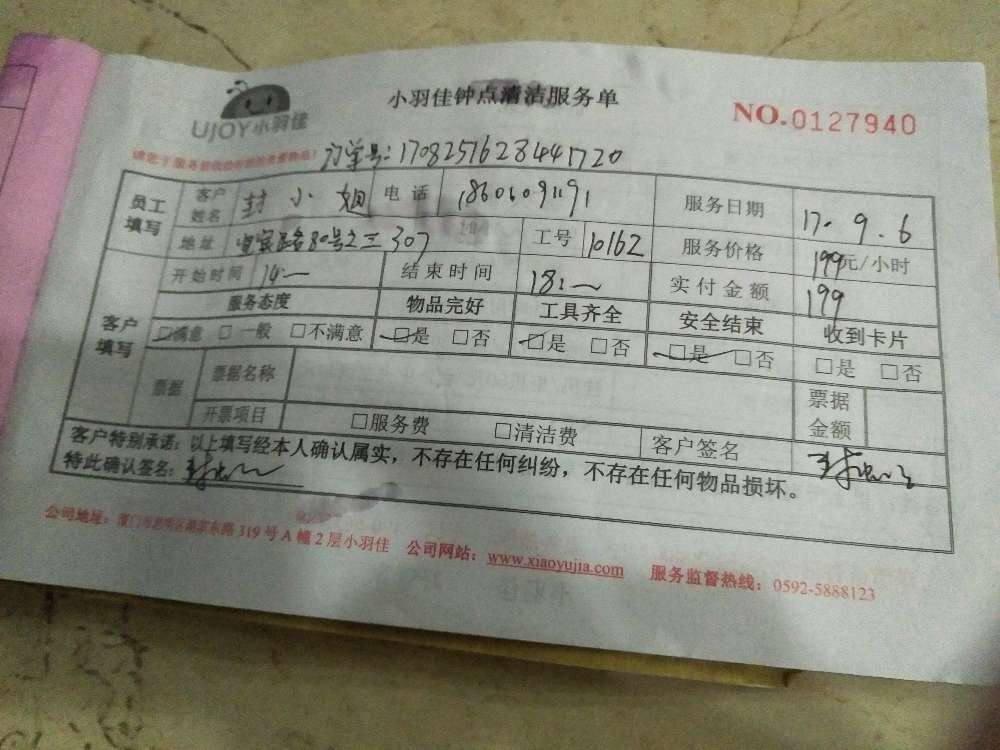 UJOY小羽佳
小羽佳钟点清洁服务单
NO.0127940
订单号:1708251628441720
员工填写 客户姓名 封小姐 电话 18606091191 服务日期 17.9.6
地址 宜宾路80号之三307 工号 10162 服务价格 199元/小时
客户填写 开始时间 14:~ 结束时间 18:~ 实付金额 199
服务态度 物品完好 工具齐全 安全结束 收到卡片
☑满意 □一般 □不满意 ☑是 □否 ☑是 □否 ☑是 □否 □是 □否
票据 票据名称 票据金额
开票项目 □服务费 □清洁费 客户签名
客户特别承诺:以上填写经本人确认属实,不存在任何纠纷,不存在任何物品损坏。
特此确认签名:
公司地址:厦门市思明区湖滨东路319号A幢2层小羽佳 公司网站:www.xiaoyujia.com 服务监督热线:0592-5888123